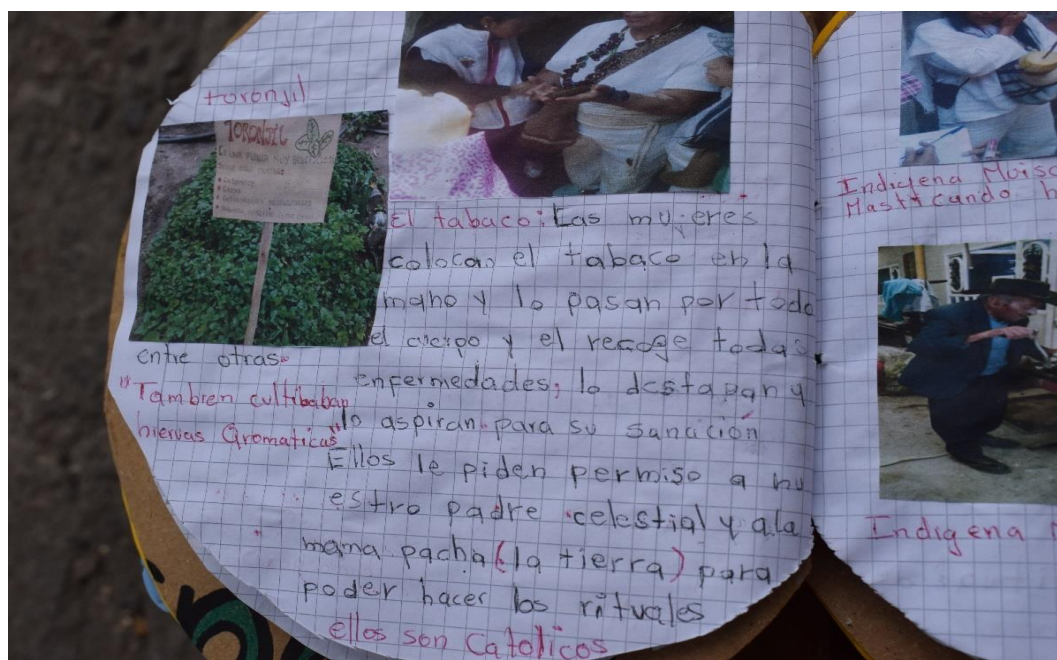 toronjil
TORONJIL
ES UNA PLANTA MUY
El tabaco: Las mujeres
colocan el tabaco en la
mano y lo pasan por todo
el cuerpo y el recoge todas
enfermedades, lo destapan y
lo aspiran para su sanición
Ellos le piden permiso a nu
estro padre celestial y ala
mama pacha (la tierra) para
poder hacer los rituales
ellos son Catolicos
entre otras.
"Tambien cultibaban
hiervas aromaticas"
Indigena
Masticando
Indigena